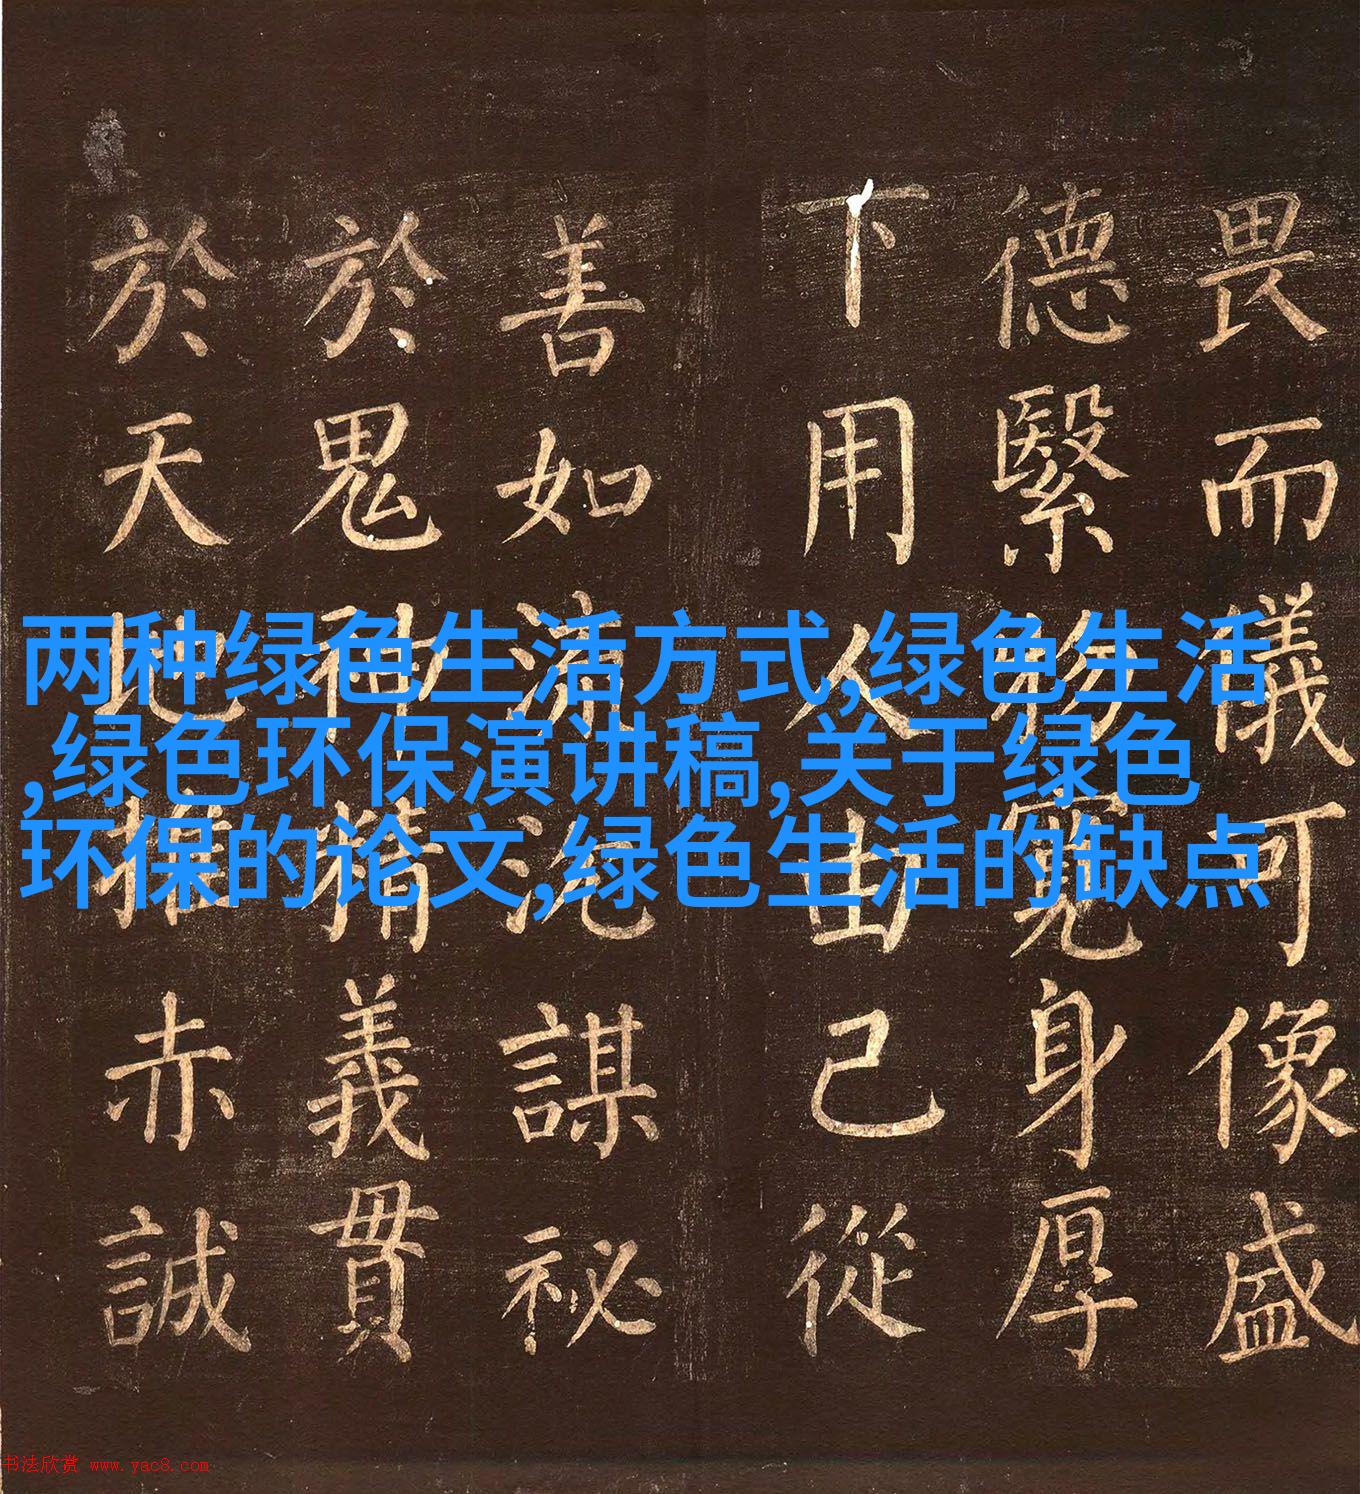 畏而儀可像盛
德繄物寬身厚
下用人由己從
善如流沉謀祕
於鬼神精義貫
於天地推赤誠
两种绿色生活方式,绿色生活
,绿色环保演讲稿,关于绿色
环保的论文,绿色生活的缺点
书法欣赏 www.yac8.com